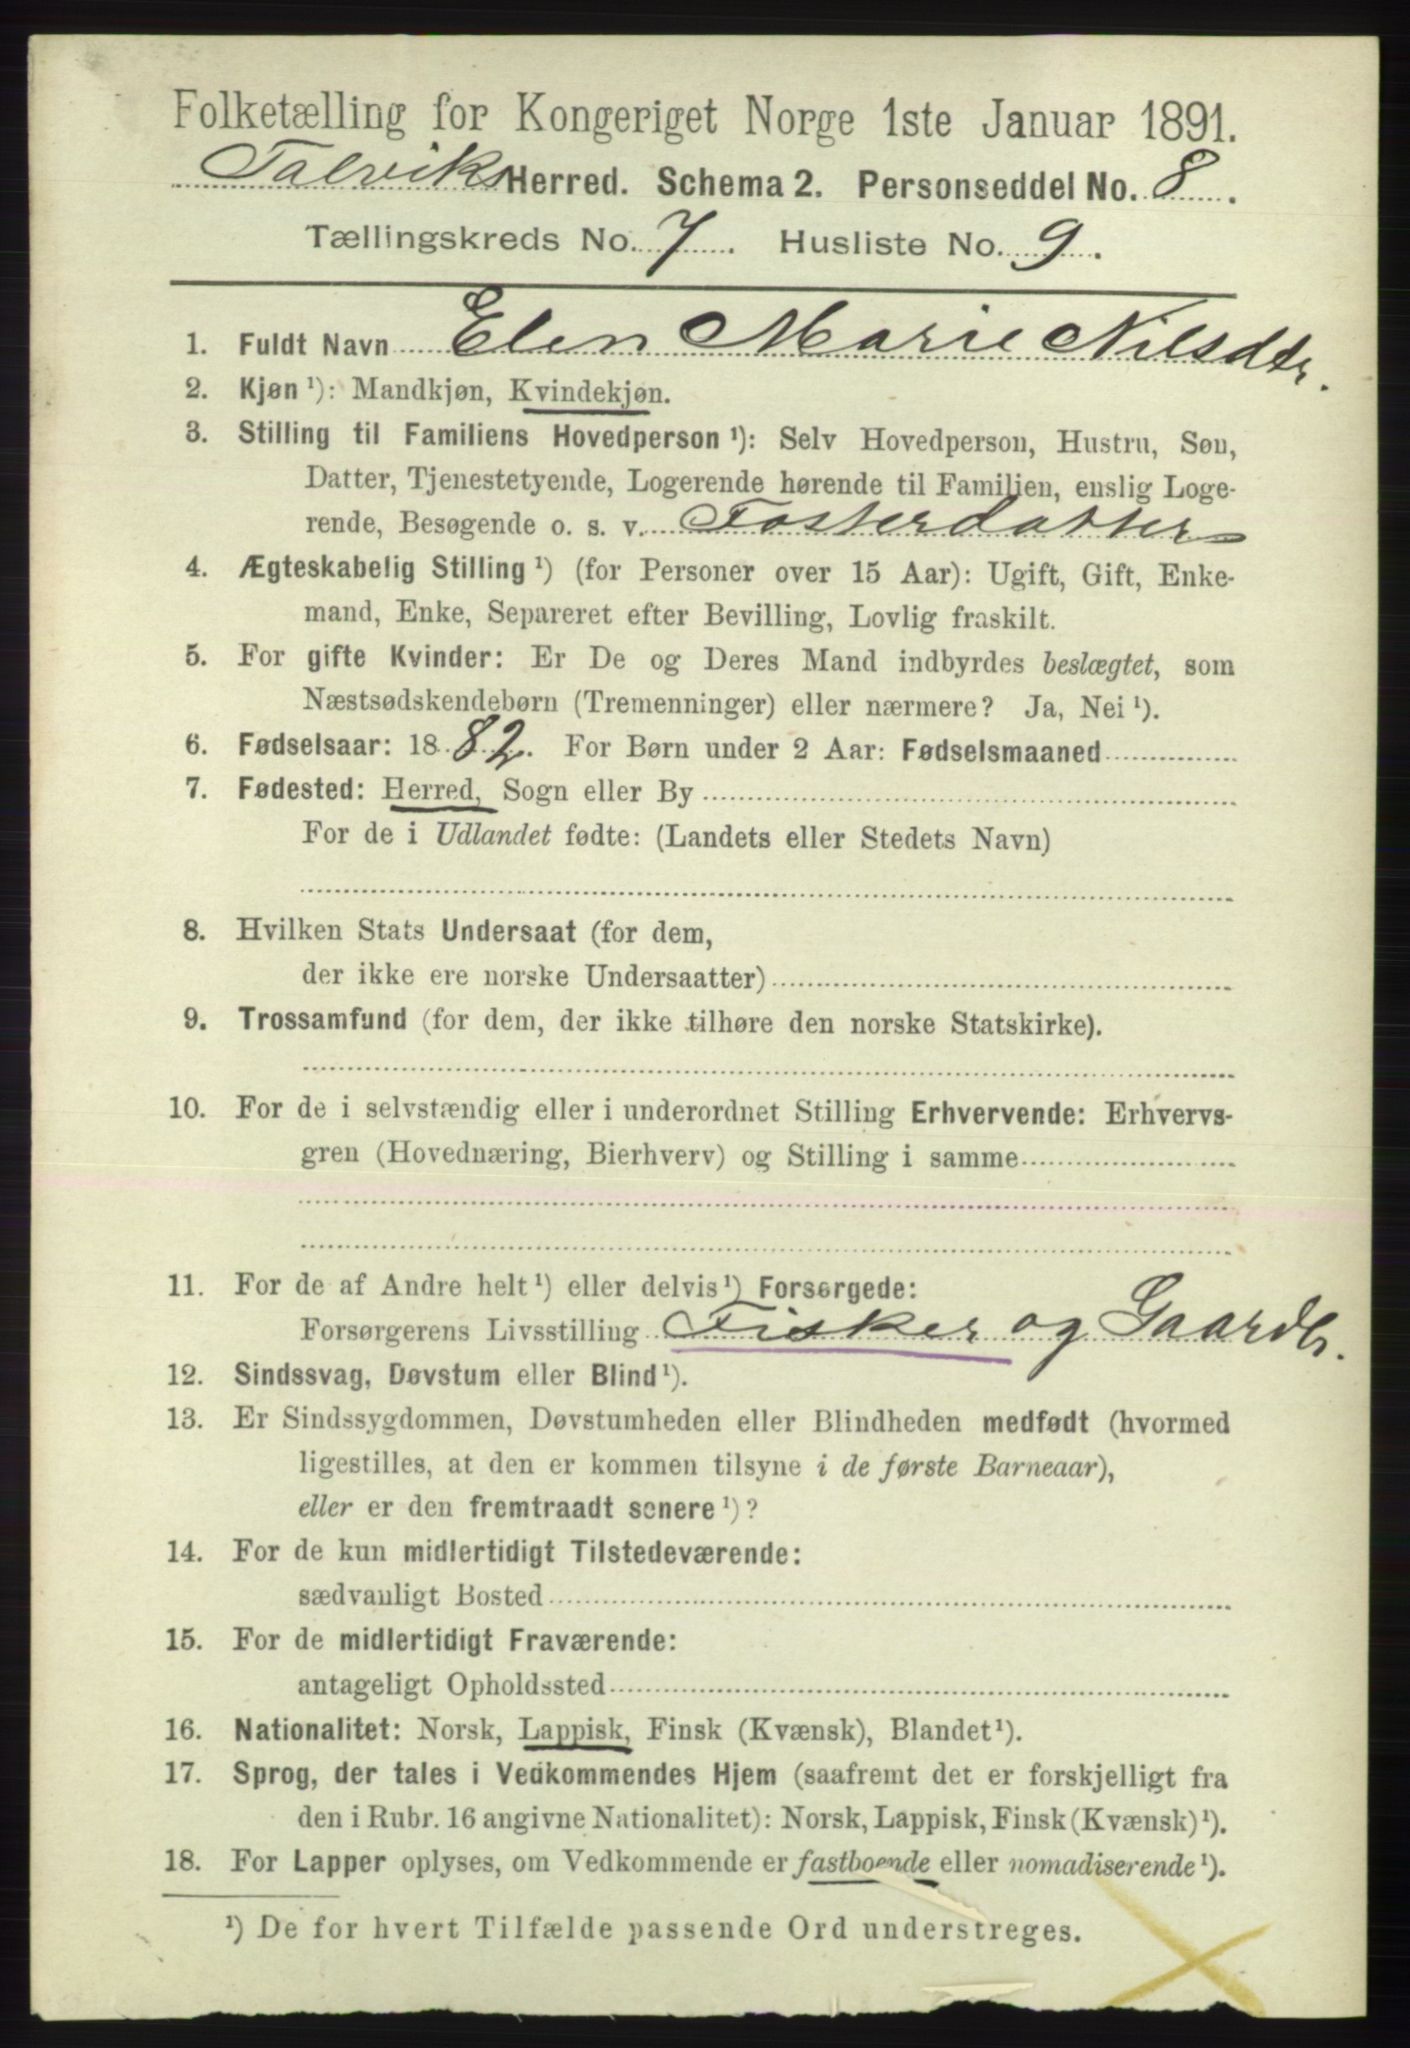 Folketælling for Kongeriget Norge 1ste Januar 1891.
Talviks Herred. Schema 2. Personseddel No. 8.
Tællingskreds No. 7. Husliste No. 9.
1. Fuldt Navn Elen Marie Nilsdtr.
2. Kjøn ¹): Mandkjøn, Kvindekjøn.
3. Stilling til Familiens Hovedperson ¹): Selv Hovedperson, Hustru, Søn,
Datter, Tjenestetyende, Logerende hørende til Familien, enslig Loge-
rende, Besøgende o. s. v. Fosterdatter
4. Ægteskabelig Stilling ¹) (for Personer over 15 Aar): Ugift, Gift, Enke-
mand, Enke, Separeret efter Bevilling, Lovlig fraskilt.
5. For gifte Kvinder: Er De og Deres Mand indbyrdes beslægtet, som
Næstsødskendebørn (Tremenninger) eller nærmere? Ja, Nei ¹).
6. Fødselsaar: 1882. For Børn under 2 Aar: Fødselsmaaned
7. Fødested: Herred, Sogn eller By
For de i Udlandet fødte: (Landets eller Stedets Navn)
8. Hvilken Stats Undersaat (for dem,
der ikke ere norske Undersaatter)
9. Trossamfund (for dem, der ikke tilhøre den norske Statskirke).
10. For de i selvstændig eller i underordnet Stilling Erhvervende: Erhvervs-
gren (Hovednæring, Bierhverv) og Stilling i samme
11. For de af Andre helt ¹) eller delvis ¹) Forsørgede:
Forsørgerens Livsstilling Fisker og Gaardb.
12. Sindssvag, Døvstum eller Blind ¹).
13. Er Sindssygdommen, Døvstumheden eller Blindheden medfødt (hvormed
ligestilles, at den er kommen tilsyne i de første Barneaar),
eller er den fremtraadt senere ¹)?
14. For de kun midlertidigt Tilstedeværende:
sædvanligt Bosted
15. For de midlertidigt Fraværende:
antageligt Opholdssted
16. Nationalitet: Norsk, Lappisk, Finsk (Kvænsk), Blandet ¹).
17. Sprog, der tales i Vedkommendes Hjem (saafremt det er forskjelligt fra
den i Rubr. 16 angivne Nationalitet): Norsk, Lappisk, Finsk (Kvænsk) ¹).
18. For Lapper oplyses, om Vedkommende er fastboende eller nomadiserende ¹).
¹) De for hvert Tilfælde passende Ord understreges.